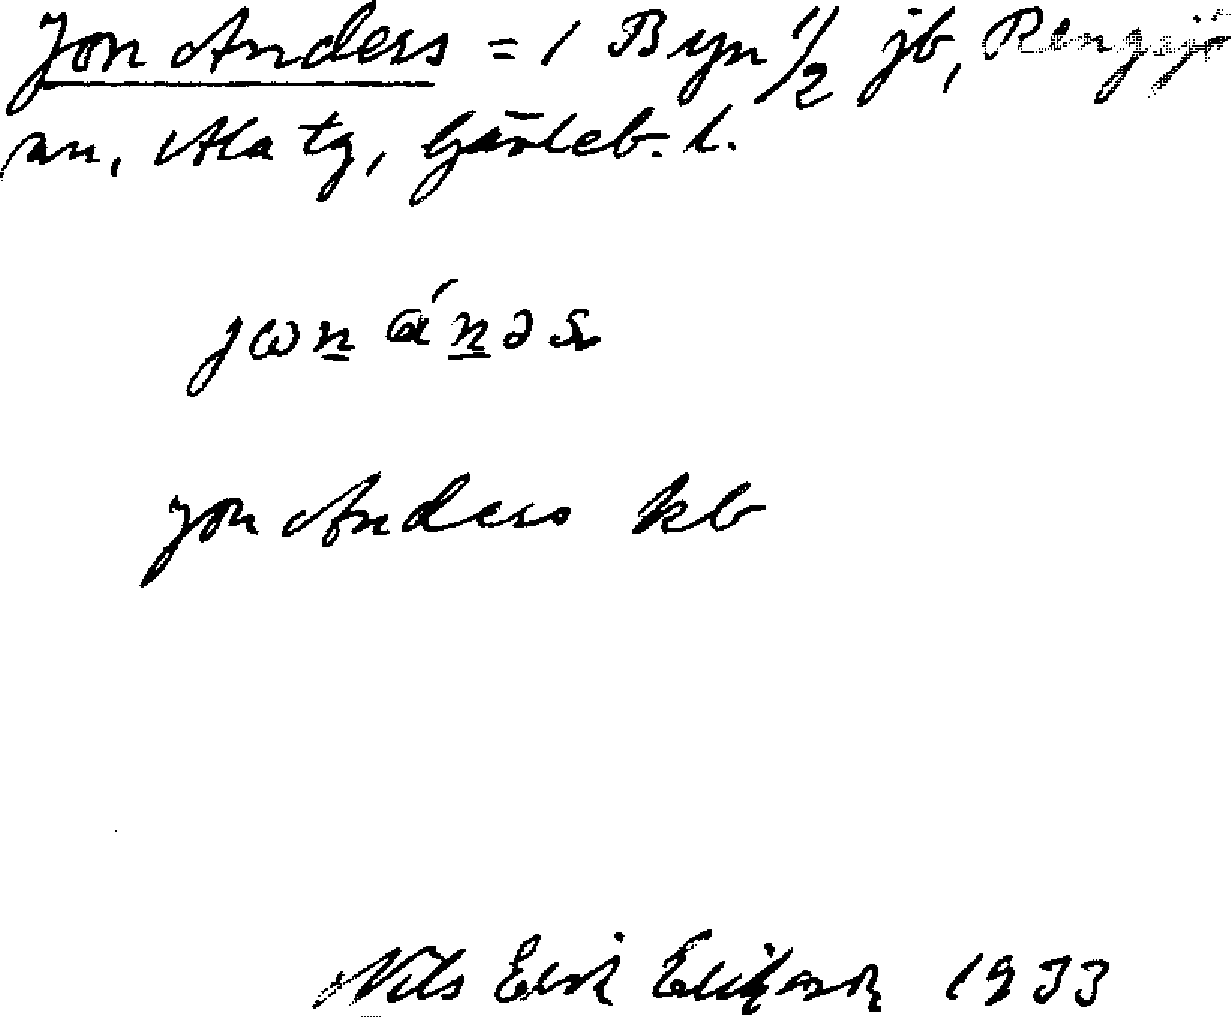 Jon Anders = 1 Byn 1/2 jb, Rengsjö
sn, Ala tg, Gävleb. l.
jωn ánəs
Jon Anders kb
Nils Erik Eriksson 1933